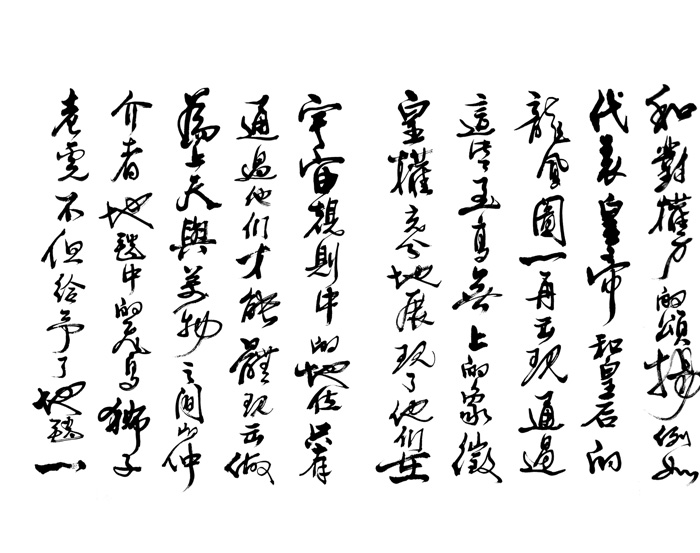 和對權力的頌揚例如
代表皇帝和皇后的
龍鳳圖一再出現通過
這些至高無上的象徵
皇權充分地展現了他們在
宇宙規則中的地位只有
通過他們才能體現出做
為上天與萬物之間的仲
介者地毯中的飛鳥獅子
老虎不但給予了地毯一